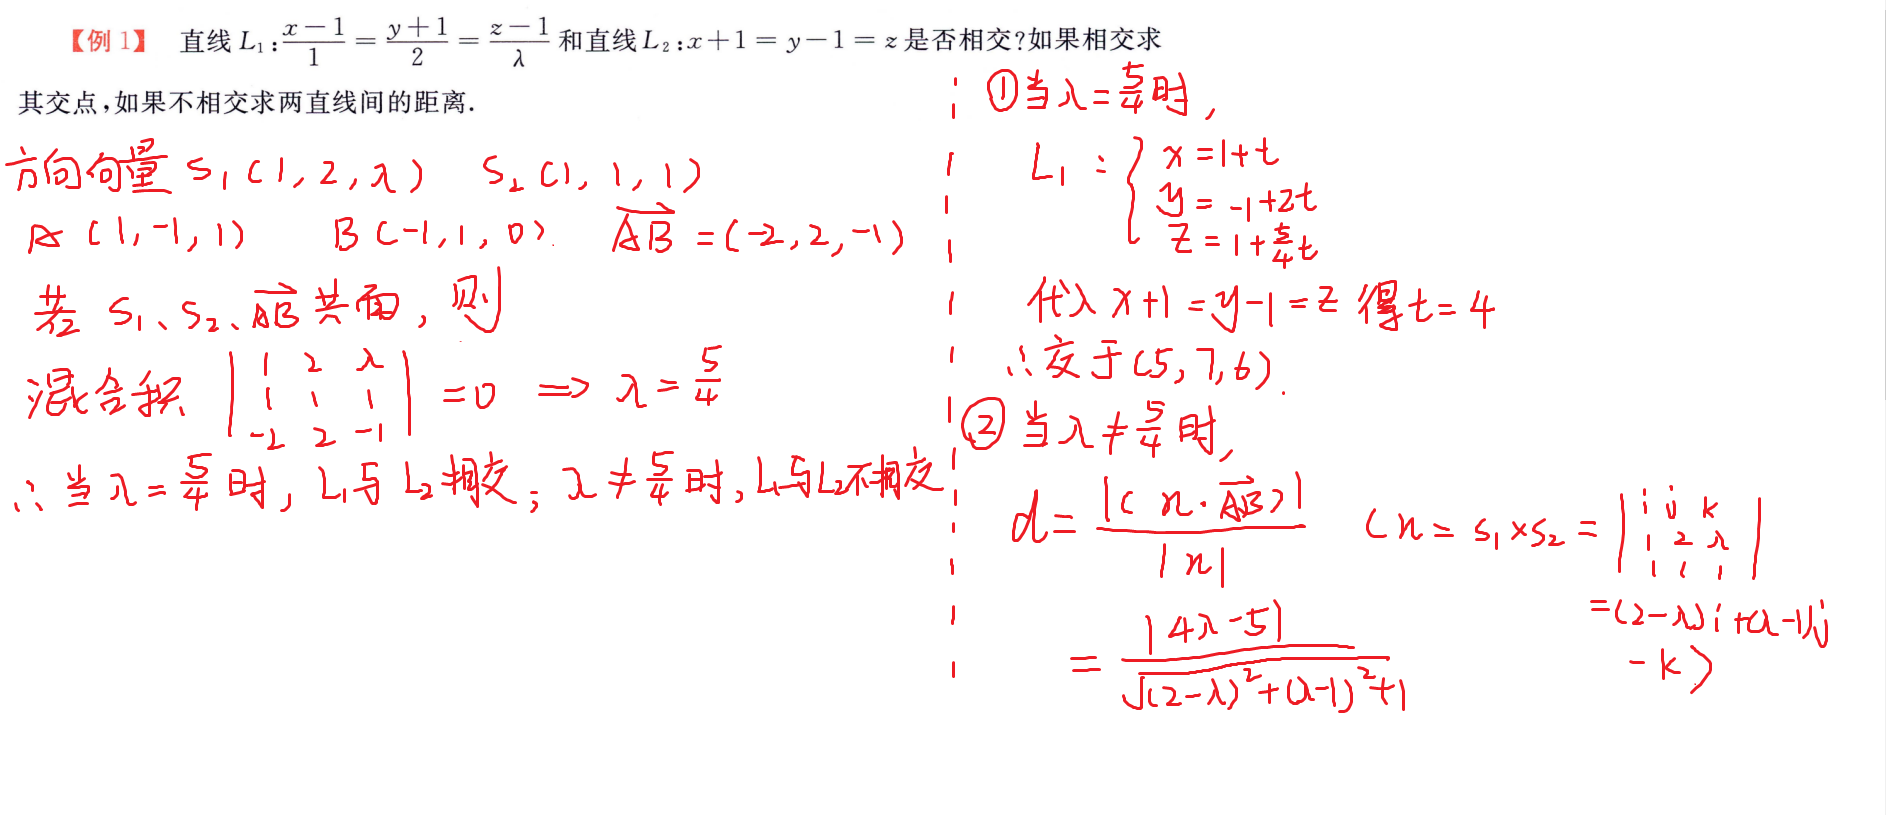 【例1】 直线 L₁:(x−1)/1=(y+1)/2=(z−1)/λ 和直线 L₂:x+1=y−1=z 是否相交?如果相交求
其交点,如果不相交求两直线间的距离.
方向向量 S₁(1,2,λ) S₂(1,1,1)
A(1,-1,1) B(-1,1,0). →AB=(-2,2,-1)
若 S₁、S₂、→AB 共面, 则
混合积 |1 2 λ; 1 1 1; -2 2 -1| =0 => λ=5/4
∴当λ=5/4时, L₁与L₂相交; λ≠5/4时, L₁与L₂不相交
①当λ=5/4时,
L₁: { x=1+t
y=-1+2t
z=1+5/4t
代入 x+1=y-1=z 得t=4
∴交于(5,7,6).
②当λ≠5/4时,
d=|(n·→AB)|/|n| (n=s₁×s₂=|i j k; 1 2 λ; 1 1 1|
=(2-λ)i+(λ-1)j
-k)
=|4λ-5|/√((2-λ)²+(λ-1)²+1)